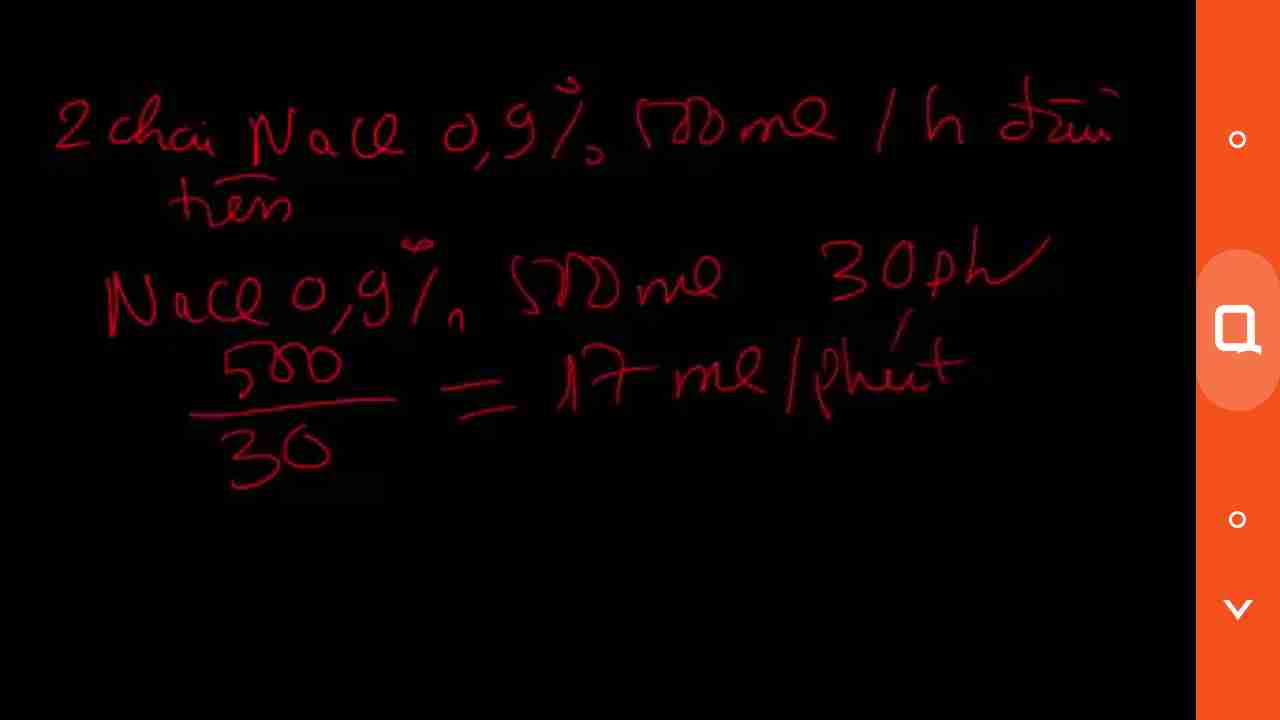 2 chai NaCl 0,9% 500 ml / h đầu
tiên
NaCl 0,9% 500 ml 30 ph
500
30
= 17 ml/phút